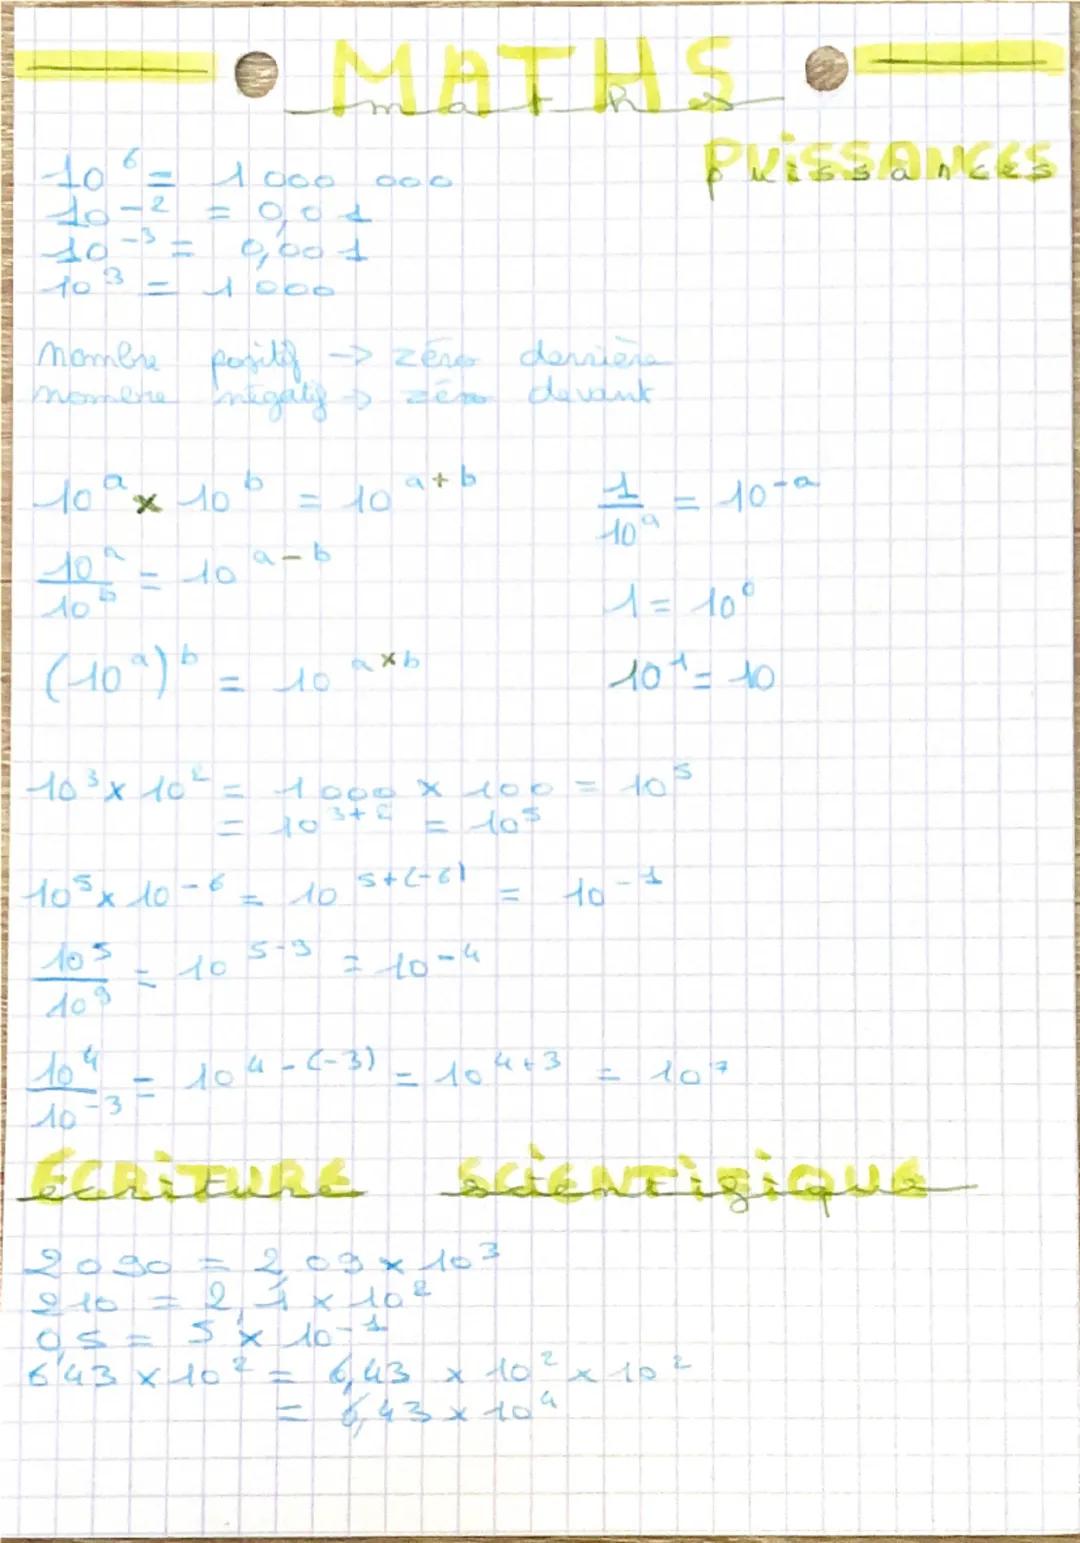 MATHS
maths
PUISSANCES
10⁶ = 1 000 000
10⁻² = 0,01
10⁻³ = 0,001
10³ = 1 000
nombre positif → zéro derrière
nombre négatif → zéro devant
10ᵃ × 10ᵇ = 10ᵃ⁺ᵇ
1/10ᵃ = 10⁻ᵃ
10ᵃ/10ᵇ = 10ᵃ⁻ᵇ
1 = 10⁰
(10ᵃ)ᵇ = 10ᵃˣᵇ
10¹ = 10
10³ × 10² = 1000 × 100 = 10⁵
= 10³⁺² = 10⁵
10⁵ × 10⁻⁶ = 10⁵⁺⁽⁻⁶⁾ = 10⁻¹
10⁵/10⁹ = 10⁵⁻⁹ = 10⁻⁴
10⁴/10⁻³ = 10⁴⁻⁽⁻³⁾ = 10⁴⁺³ = 10⁷
ÉCRITURE SCIENTIFIQUE
2090 = 2,09 × 10³
210 = 2,1 × 10²
0,5 = 5 × 10⁻¹
643 × 10² = 6,43 × 10² × 10²
= 6,43 × 10⁴